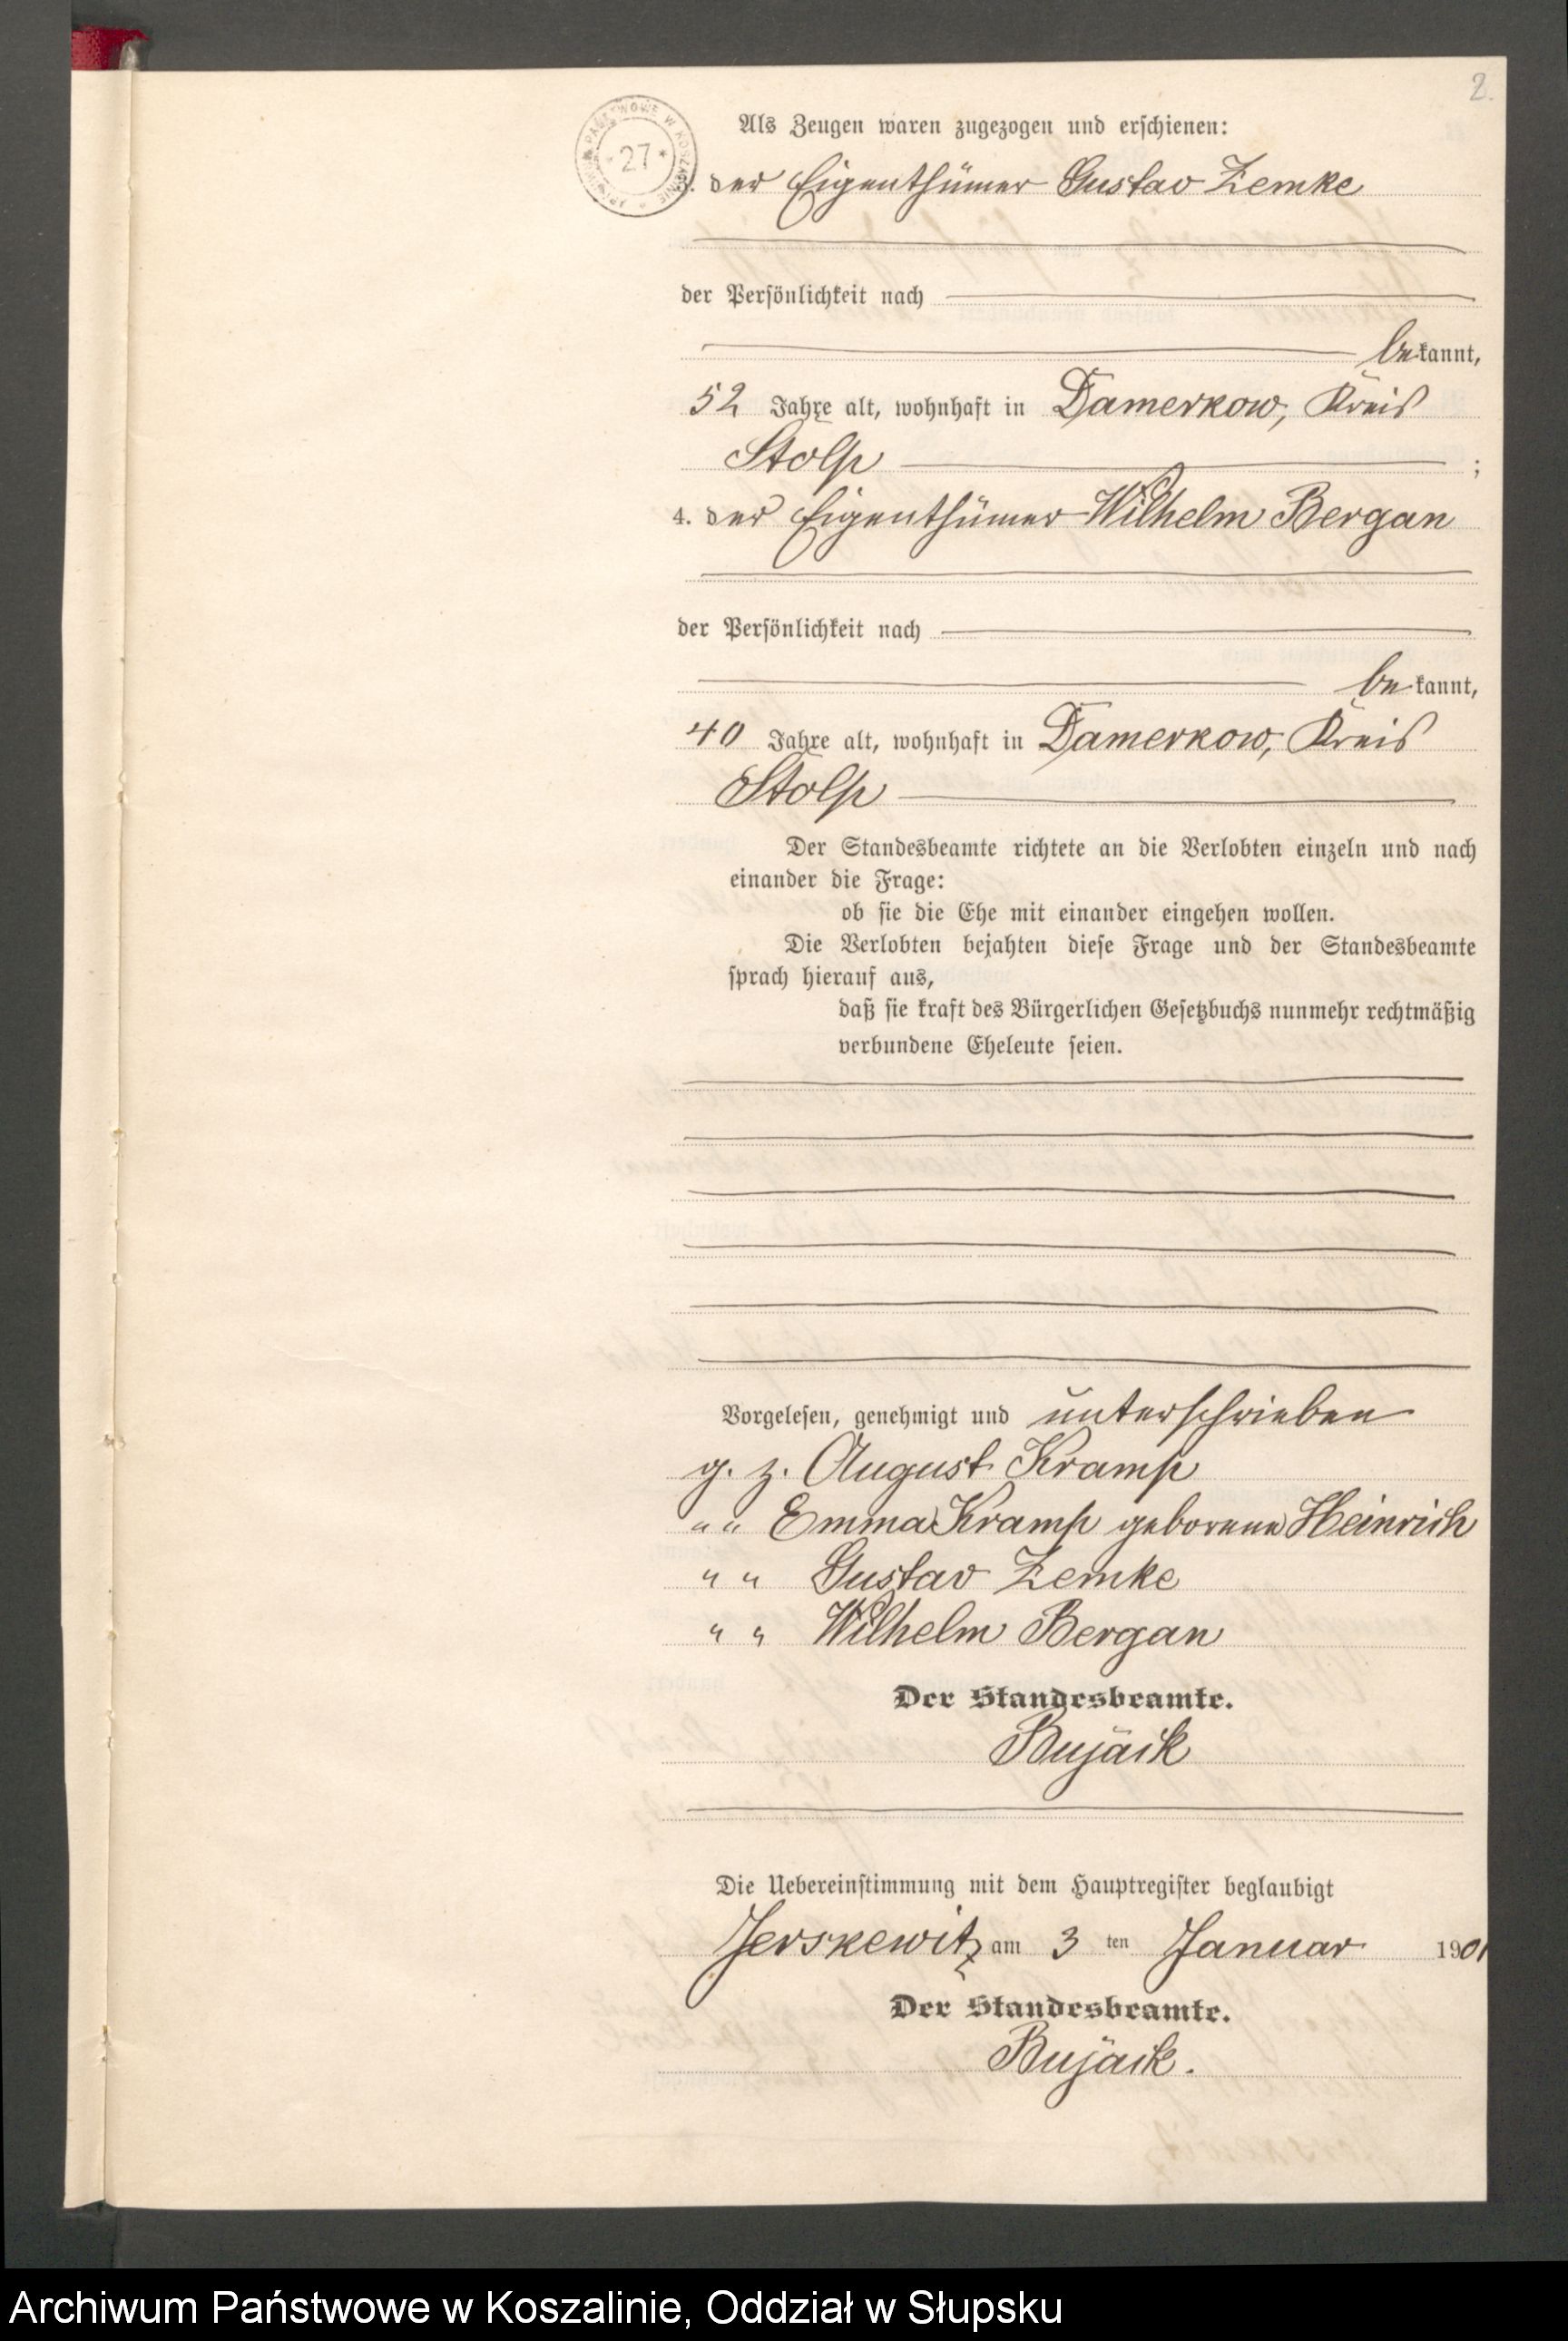 2.
ARCHIWUM PAŃSTWOWE W KOSZALINIE
* 27 *
Als Zeugen waren zugezogen und erschienen:
der Eigenthümer Gustav Zemke
der Persönlichkeit nach
bekannt,
52 Jahre alt, wohnhaft in Damerkow, Kreis
Stolp ;
4. der Eigenthümer Wilhelm Bergan
der Persönlichkeit nach
bekannt,
40 Jahre alt, wohnhaft in Damerkow, Kreis
Stolp
Der Standesbeamte richtete an die Verlobten einzeln und nach
einander die Frage:
ob sie die Ehe mit einander eingehen wollen.
Die Verlobten bejahten diese Frage und der Standesbeamte
sprach hierauf aus,
daß sie kraft des Bürgerlichen Gesetzbuchs nunmehr rechtmäßig
verbundene Eheleute seien.
Vorgelesen, genehmigt und unterschrieben
g. z. August Kramp
" " Emma Kramp geborene Heinrich
" " Gustav Zemke
" " Wilhelm Bergan
Der Standesbeamte.
Bujäck
Die Uebereinstimmung mit dem Hauptregister beglaubigt
Jerskewitz am 3 ten Januar 1901
Der Standesbeamte.
Bujäck.
Archiwum Państwowe w Koszalinie, Oddział w Słupsku